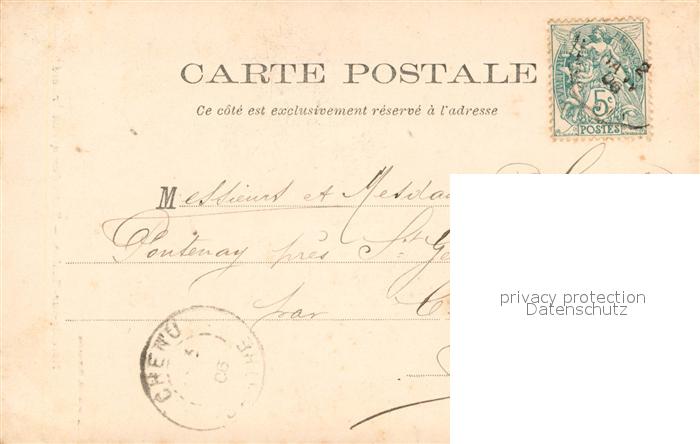 CARTE POSTALE
Ce côté est exclusivement réservé à l'adresse
5c
POSTES
Messieurs et Mesda
Fontenay près St Ge
par C
CHENU
06
privacy protection
Datenschutz